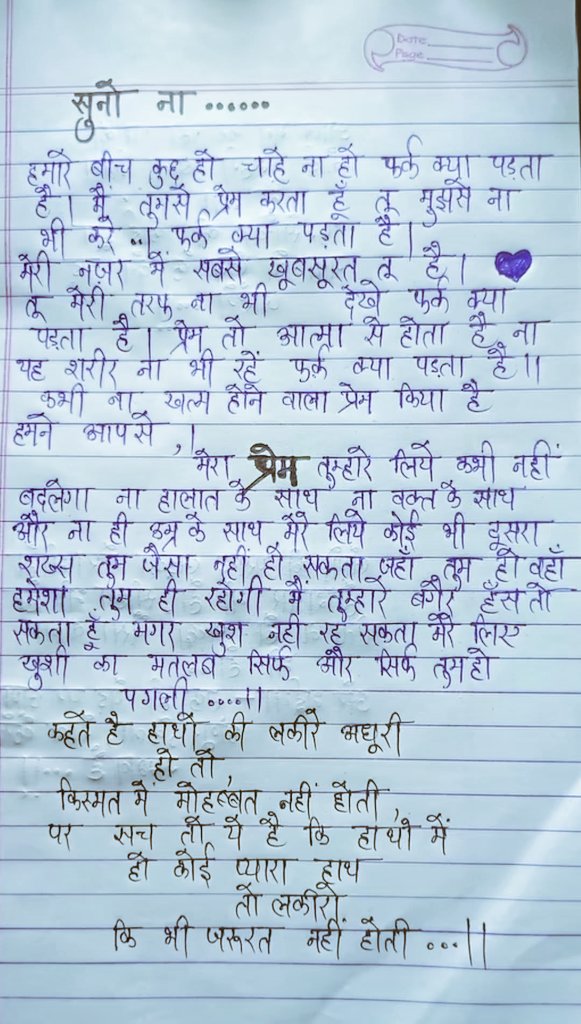 Date
Page
सुनो ना ......
हमारे बीच कुछ हो चाहे ना हो फर्क क्या पड़ता
है। मैं तुमसे प्रेम करता हूँ तू मुझसे ना
भी करे ..। फर्क क्या पड़ता है।
मेरी नज़र में सबसे खूबसूरत तू है।
तू मेरी तरफ ना भी देखे फर्क क्या
पड़ता है। प्रेम तो आत्मा से होता है ना
यह शरीर ना भी रहें फर्क क्या पड़ता है।।
कभी ना खत्म होने वाला प्रेम किया है
हमने आपसे ,।
मेरा प्रेम तुम्हारे लिये कभी नहीं
बदलेगा ना हालात के साथ ना वक्त के साथ
और ना ही उम्र के साथ मेरे लिये कोई भी दूसरा
शख्स तुम जैसा नहीं हो सकता जहाँ तुम हो वहाँ
हमेशा तुम ही रहोगी मैं तुम्हारे बगैर हँस तो
सकता हूँ मगर खुश नहीं रह सकता मेरे लिए
खुशी का मतलब सिर्फ और सिर्फ तुम हो
पगली ....।।
कहते है हाथों की लकीरे अधूरी
हो तो,
किस्मत में मोहब्बत नहीं होती,
पर सच तो ये है कि हाथो में
हो कोई प्यारा हाथ
तो लकीरो
कि भी जरूरत नहीं होती ...।।